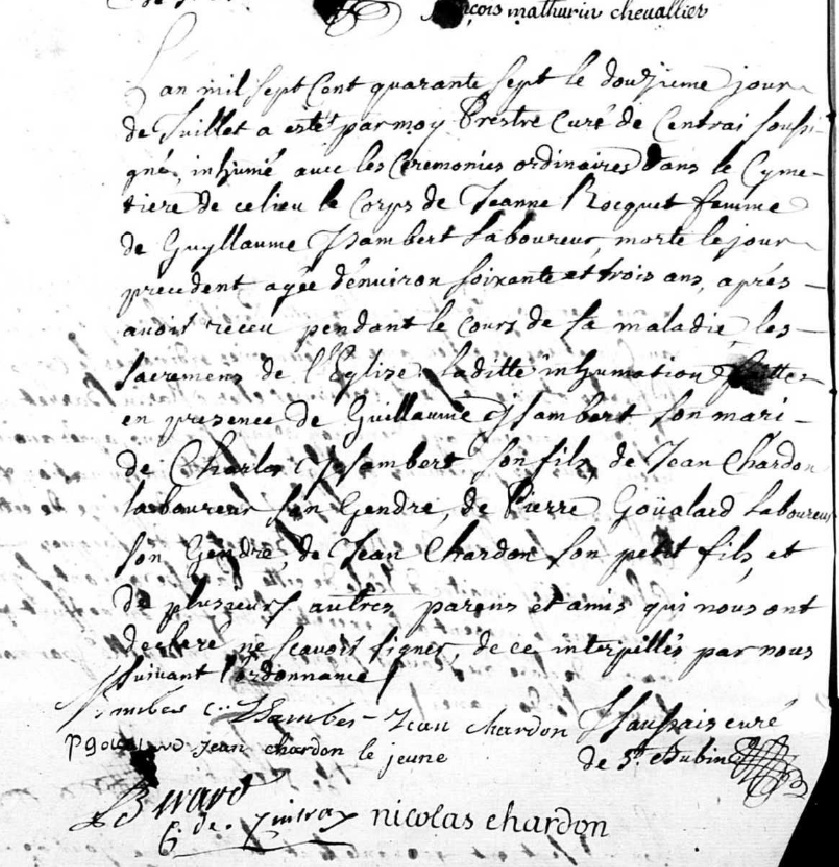 françois mathurin chevallier
L'an mil sept Cent quarante sept le douzieme jour
de Juillet a esté par moy Prestre Curé de Centrai sousi
gné, inhumé avec les Ceremonies ordinaires dans le Cyme-
tiere de ce lieu le Corps de Jeanne Rocquet femme
de Guyllaume Jsambert Laboureur, morte le jour
precedent agée d'environ soixante et trois ans, aprés
avoir receu pendant le cours de sa maladie les
sacremens de l'Eglise, laditte inhumation faitte
en presence de Guillaume Jsambert son mari
de Charles Jsambert son fils, de Jean Chardon
laboureur son Gendre, de Pierre Goüalard Laboureur
son Gendre, de Jean Chardon son petit fils, et
de plusieurs autres parens et amis qui nous ont
declaré ne scavoir signer, de ce interpellés par nous
suivant l'ordonnance
C. Jsambert Jean chardon curé
Jean chardon le jeune de St Aubin
nicolas chardon